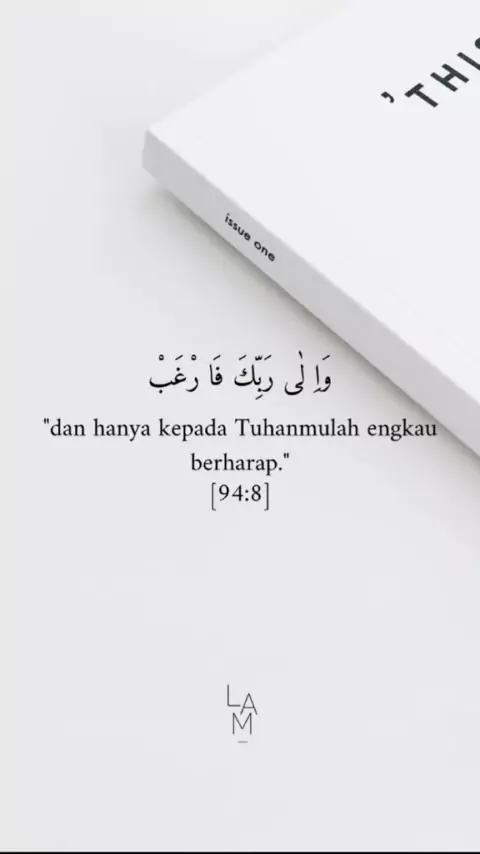 'THIS
issue one
وَاِ لٰى رَبِّكَ فَا رْغَبْ
"dan hanya kepada Tuhanmulah engkau
berharap."
[94:8]
LAM